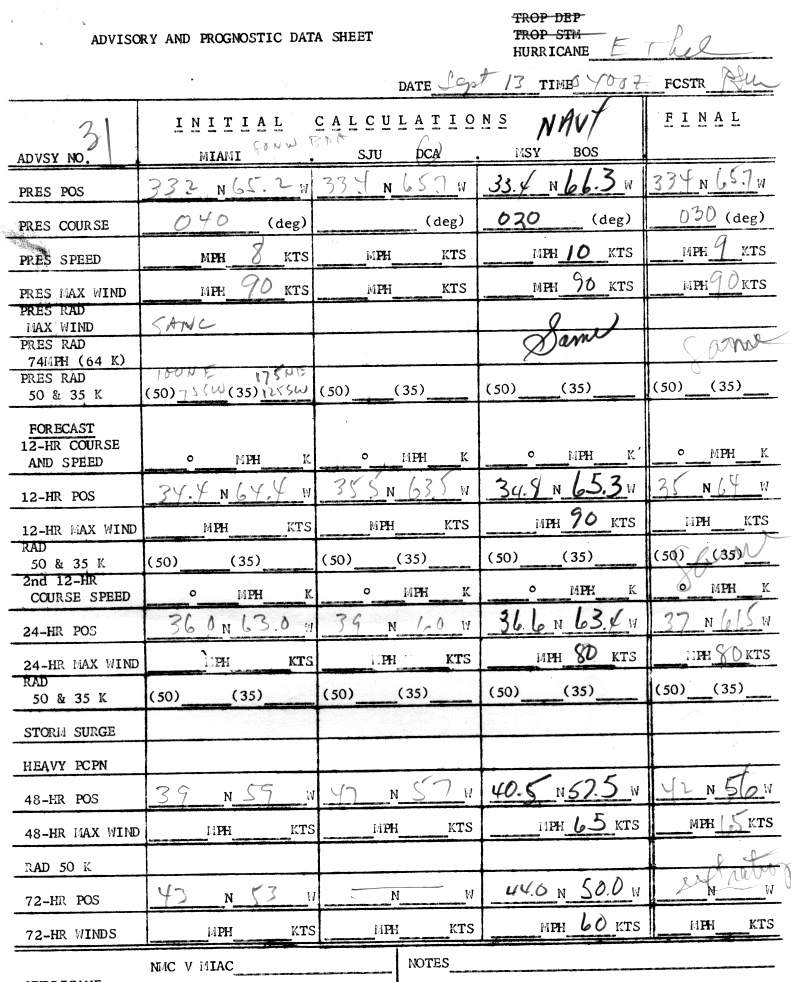 TROP DEP
TROP STM
ADVISORY AND PROGNOSTIC DATA SHEET
HURRICANE Ethel
DATE Sept 13 TIME 0400Z FCSTR
I N I T I A L C A L C U L A T I O N S NAVY F I N A L
ADVSY NO. 31 MIAMI SJU DCA MSY BOS
PRES POS 332 N 65.2 W 334 N 657 W 33.4 N 66.3 W 334 N 657 W
PRES COURSE 040 (deg) (deg) 020 (deg) 030 (deg)
PRES SPEED MPH 8 KTS MPH KTS MPH 10 KTS MPH 9 KTS
PRES MAX WIND MPH 90 KTS MPH KTS MPH 90 KTS MPH 90 KTS
PRES RAD
MAX WIND SAME
PRES RAD
74MPH (64 K) Same Same
PRES RAD 100NE 175NE
50 & 35 K (50) 75SW (35) 125SW (50) (35) (50) (35) (50) (35)
FORECAST
12-HR COURSE
AND SPEED ° MPH K ° MPH K ° MPH K ° MPH K
12-HR POS 34.4 N 64.4 W 355 N 635 W 34.9 N 65.3 W 35 N 64 W
12-HR MAX WIND MPH KTS MPH KTS MPH 90 KTS MPH KTS
RAD
50 & 35 K (50) (35) (50) (35) (50) (35) (50) (35) Same
2nd 12-HR
COURSE SPEED ° MPH K ° MPH K ° MPH K ° MPH K
24-HR POS 36 0 N 63.0 W 39 N 60 W 36.6 N 63.4 W 37 N 615 W
24-HR MAX WIND MPH KTS MPH KTS MPH 80 KTS MPH 80 KTS
RAD
50 & 35 K (50) (35) (50) (35) (50) (35) (50) (35)
STORM SURGE
HEAVY PCPN
48-HR POS 39 N 59 W 47 N 57 W 40.5 N 57.5 W 42 N 56 W
48-HR MAX WIND MPH KTS MPH KTS MPH 65 KTS MPH 65 KTS
RAD 50 K
72-HR POS 43 N 53 W N W 44.0 N 50.0 W N W
72-HR WINDS MPH KTS MPH KTS MPH 60 KTS MPH KTS
NMC V MIAC NOTES